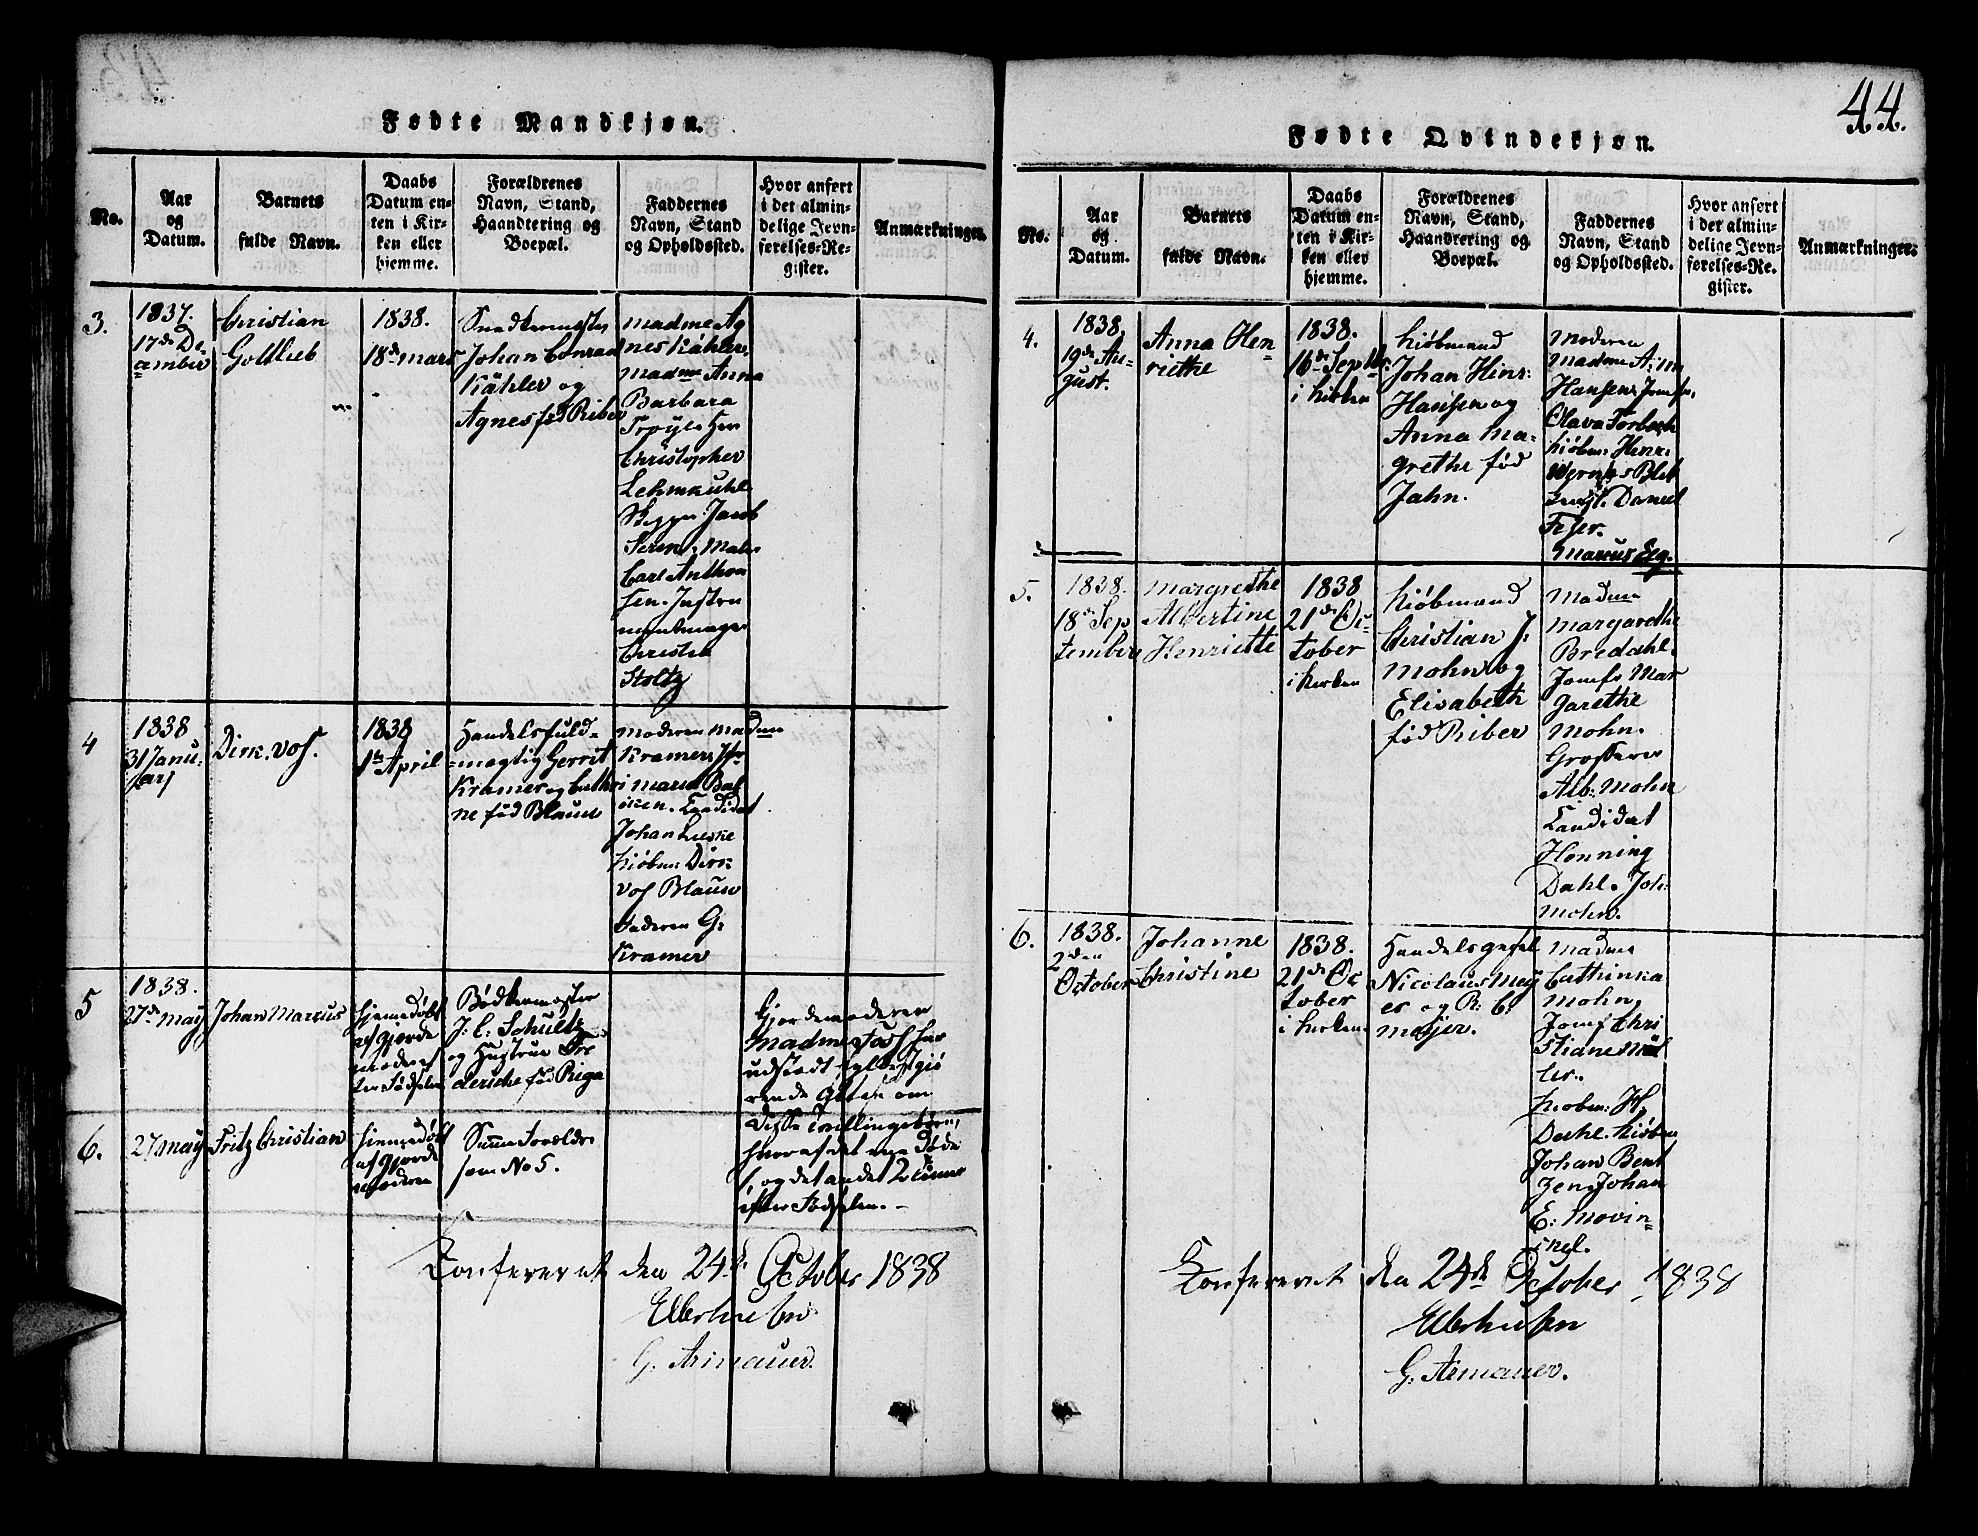 Fødte Mandkjøn.
No.
Aar
og
Datum.
Barnets
fulde Navn.
Daabs
Datum en-
ten i Kir-
ken eller
hjemme.
Forældrenes
Navn, Stand,
Haandtering og
Boepæl.
Faddernes
Navn, Stand
og Opholdssted.
Hvor anført
i det almin-
delige Jevn-
førelses-Re-
gister.
Anmærkninger.
3.
1837.
17de De-
cember
Christian
Gottlieb
1838.
18de Mars
Snedkermester
Johan Conrad
Kähler og
Agnes fød Riber
Madme Ag
nes Kähler,
Madme Anna
Barbara
Christopher
Lehmkuhl
Skipper Jacob
Carl Anthon
sen. Instru
mentmager
Christia
Stoltz
4
1838
31 Janu-
arj
Dirk. Vos.
1838
1te April
Handelsfuld-
mægtig Gerrit
Kramer og Cathri
ne fød Blauw
Moderen Madme
Kramer, Jfr
Maria Bal
Candidat
Johan Lieske
Kiøbm: Dirk
Vos Blauw
Faderen G:
Kramer
5
1838.
27de May
Johan Marcus
Hjemmedøbt
af Gjorde
moderen ef
ter Fødselen
Bødkermester
J: C: Schultz
og Hustrue Fre
deriche fød Riga
Gjordemoderen
Madme Fash har
udstædt fyldestgiø
rende Attest om
disse Tvillingebørn,
hvoraf det ene døde
1, og det andet 2 Timer
efter Fødselen. -
6.
27 May
Fritz Christian
Hjemmedøbt
af Gjorde
moderen
Samme Forældre
som No 5.
Confereret den 24de October 1838
Ellerhusen
G. Armauer.
44.
Fødte Qvindekjøn.
No.
Aar
og
Datum.
Barnets
fulde Navn.
Daabs
Datum en-
ten i Kir-
ken eller
hjemme.
Forældrenes
Navn, Stand,
Haandtering og
Boepæl.
Faddernes
Navn, Stand
og Opholdssted.
Hvor anført
i det almin-
delige Jevn-
førelses-Re-
gister.
Anmærkninger.
4.
1838.
19de Au-
gust.
Anna Hen-
riethe
1838.
16de Septbr.
i Kirken
Kiøbmand
Johan Hinr:
Hansen og
Anna Ma-
grethe fød
Jahn.
Moderen
Madme
Hansen, Jomfr.
Olava
Kiøbm: Henr:
Daniel
Marcus Eeg.
5.
1838.
18de Sep
tember
Margrethe
Albertine
Henriette
1838
21de Oc-
tober
i Kirken
Kiøbmand
Christian J:
Mohn og
Elisabeth
fød Riber
Madme
Margarethe
Bredahl.
Jomfr Mar
garethe
Mohn.
Alb: Mohn
Candidat
Henning
Dahl. Joh:
Mohn.
6.
1838.
2den
October
Johanne
Christine
1838.
21de Oc
tober
i Kirken
Handelsgesel
Nicolaus Mey
er og R: C:
Mejer.
Madme
Cathinka
Mohn
Jomf Chri
stiane Mül
ler.
Kiøbm: H
Dahl. Kiøbm
Johan Bent
zen, Johan
E: Movin-
ckel.
Confereret den 24de October 1838
Ellerhusen
G. Armauer.